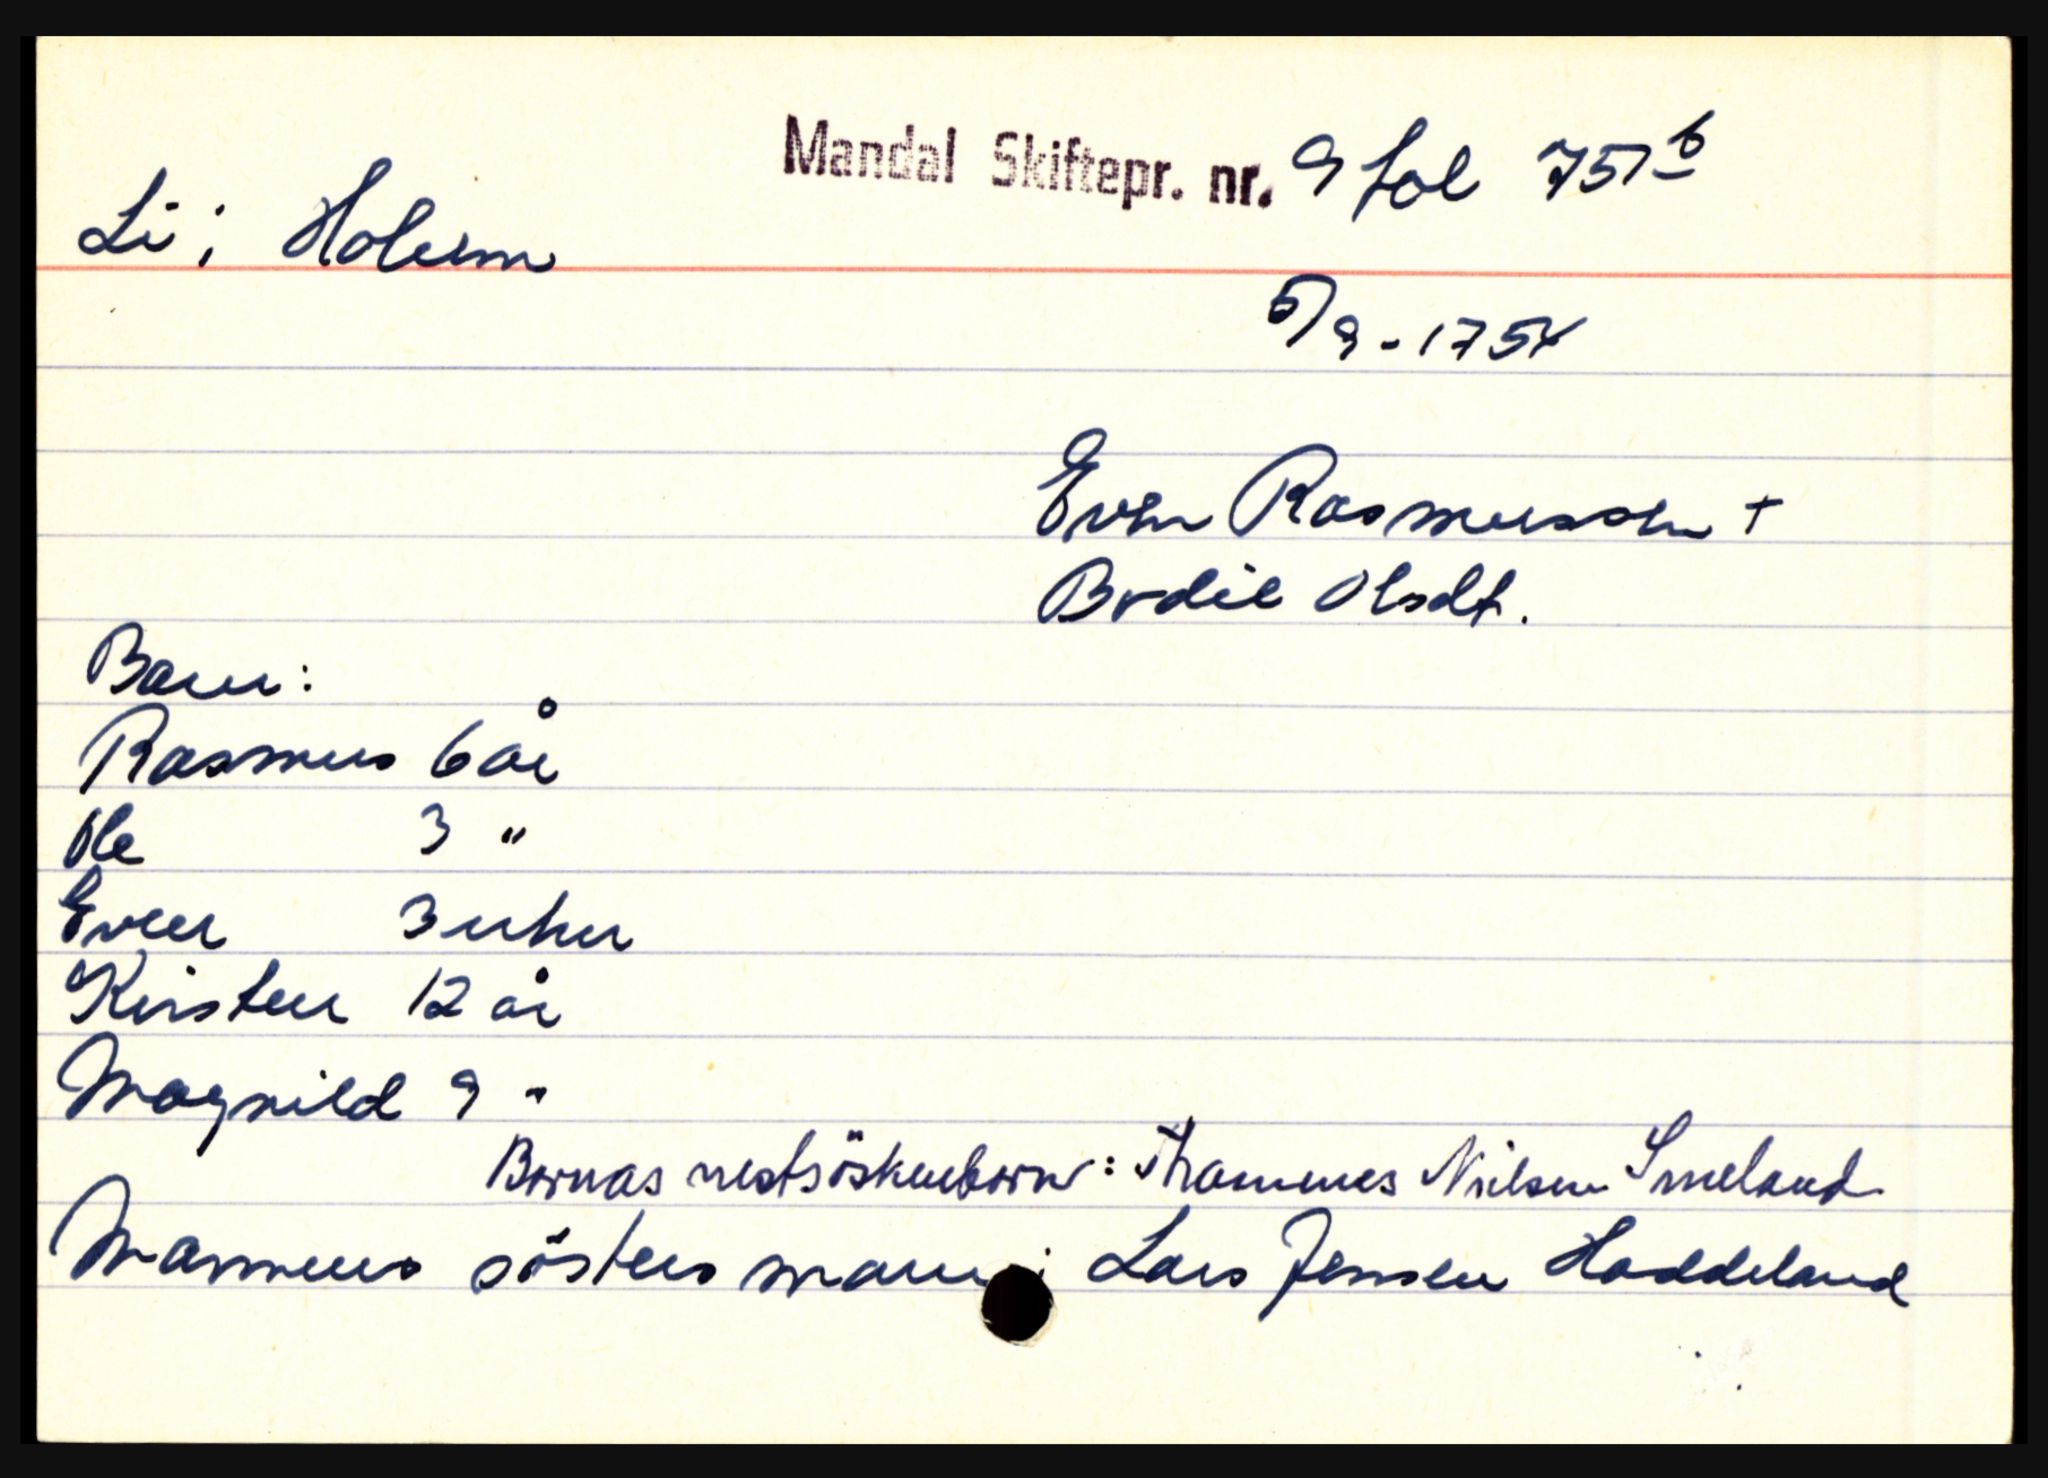 Mandal Skiftepr. nr. 9 fol 751 b
Li i Holum
5/9 - 1754
Even Rasmussen +
Bodil Olsdt.
Barn:
Rasmus 6 år
Ole 3 "
Even 3 uker
Kirsten 12 år
Magnild 9 "
Bornas nestsöskenborn: Thommes Nielsen Smeland
Mannens sösters mann: Lars Jensen Haddeland